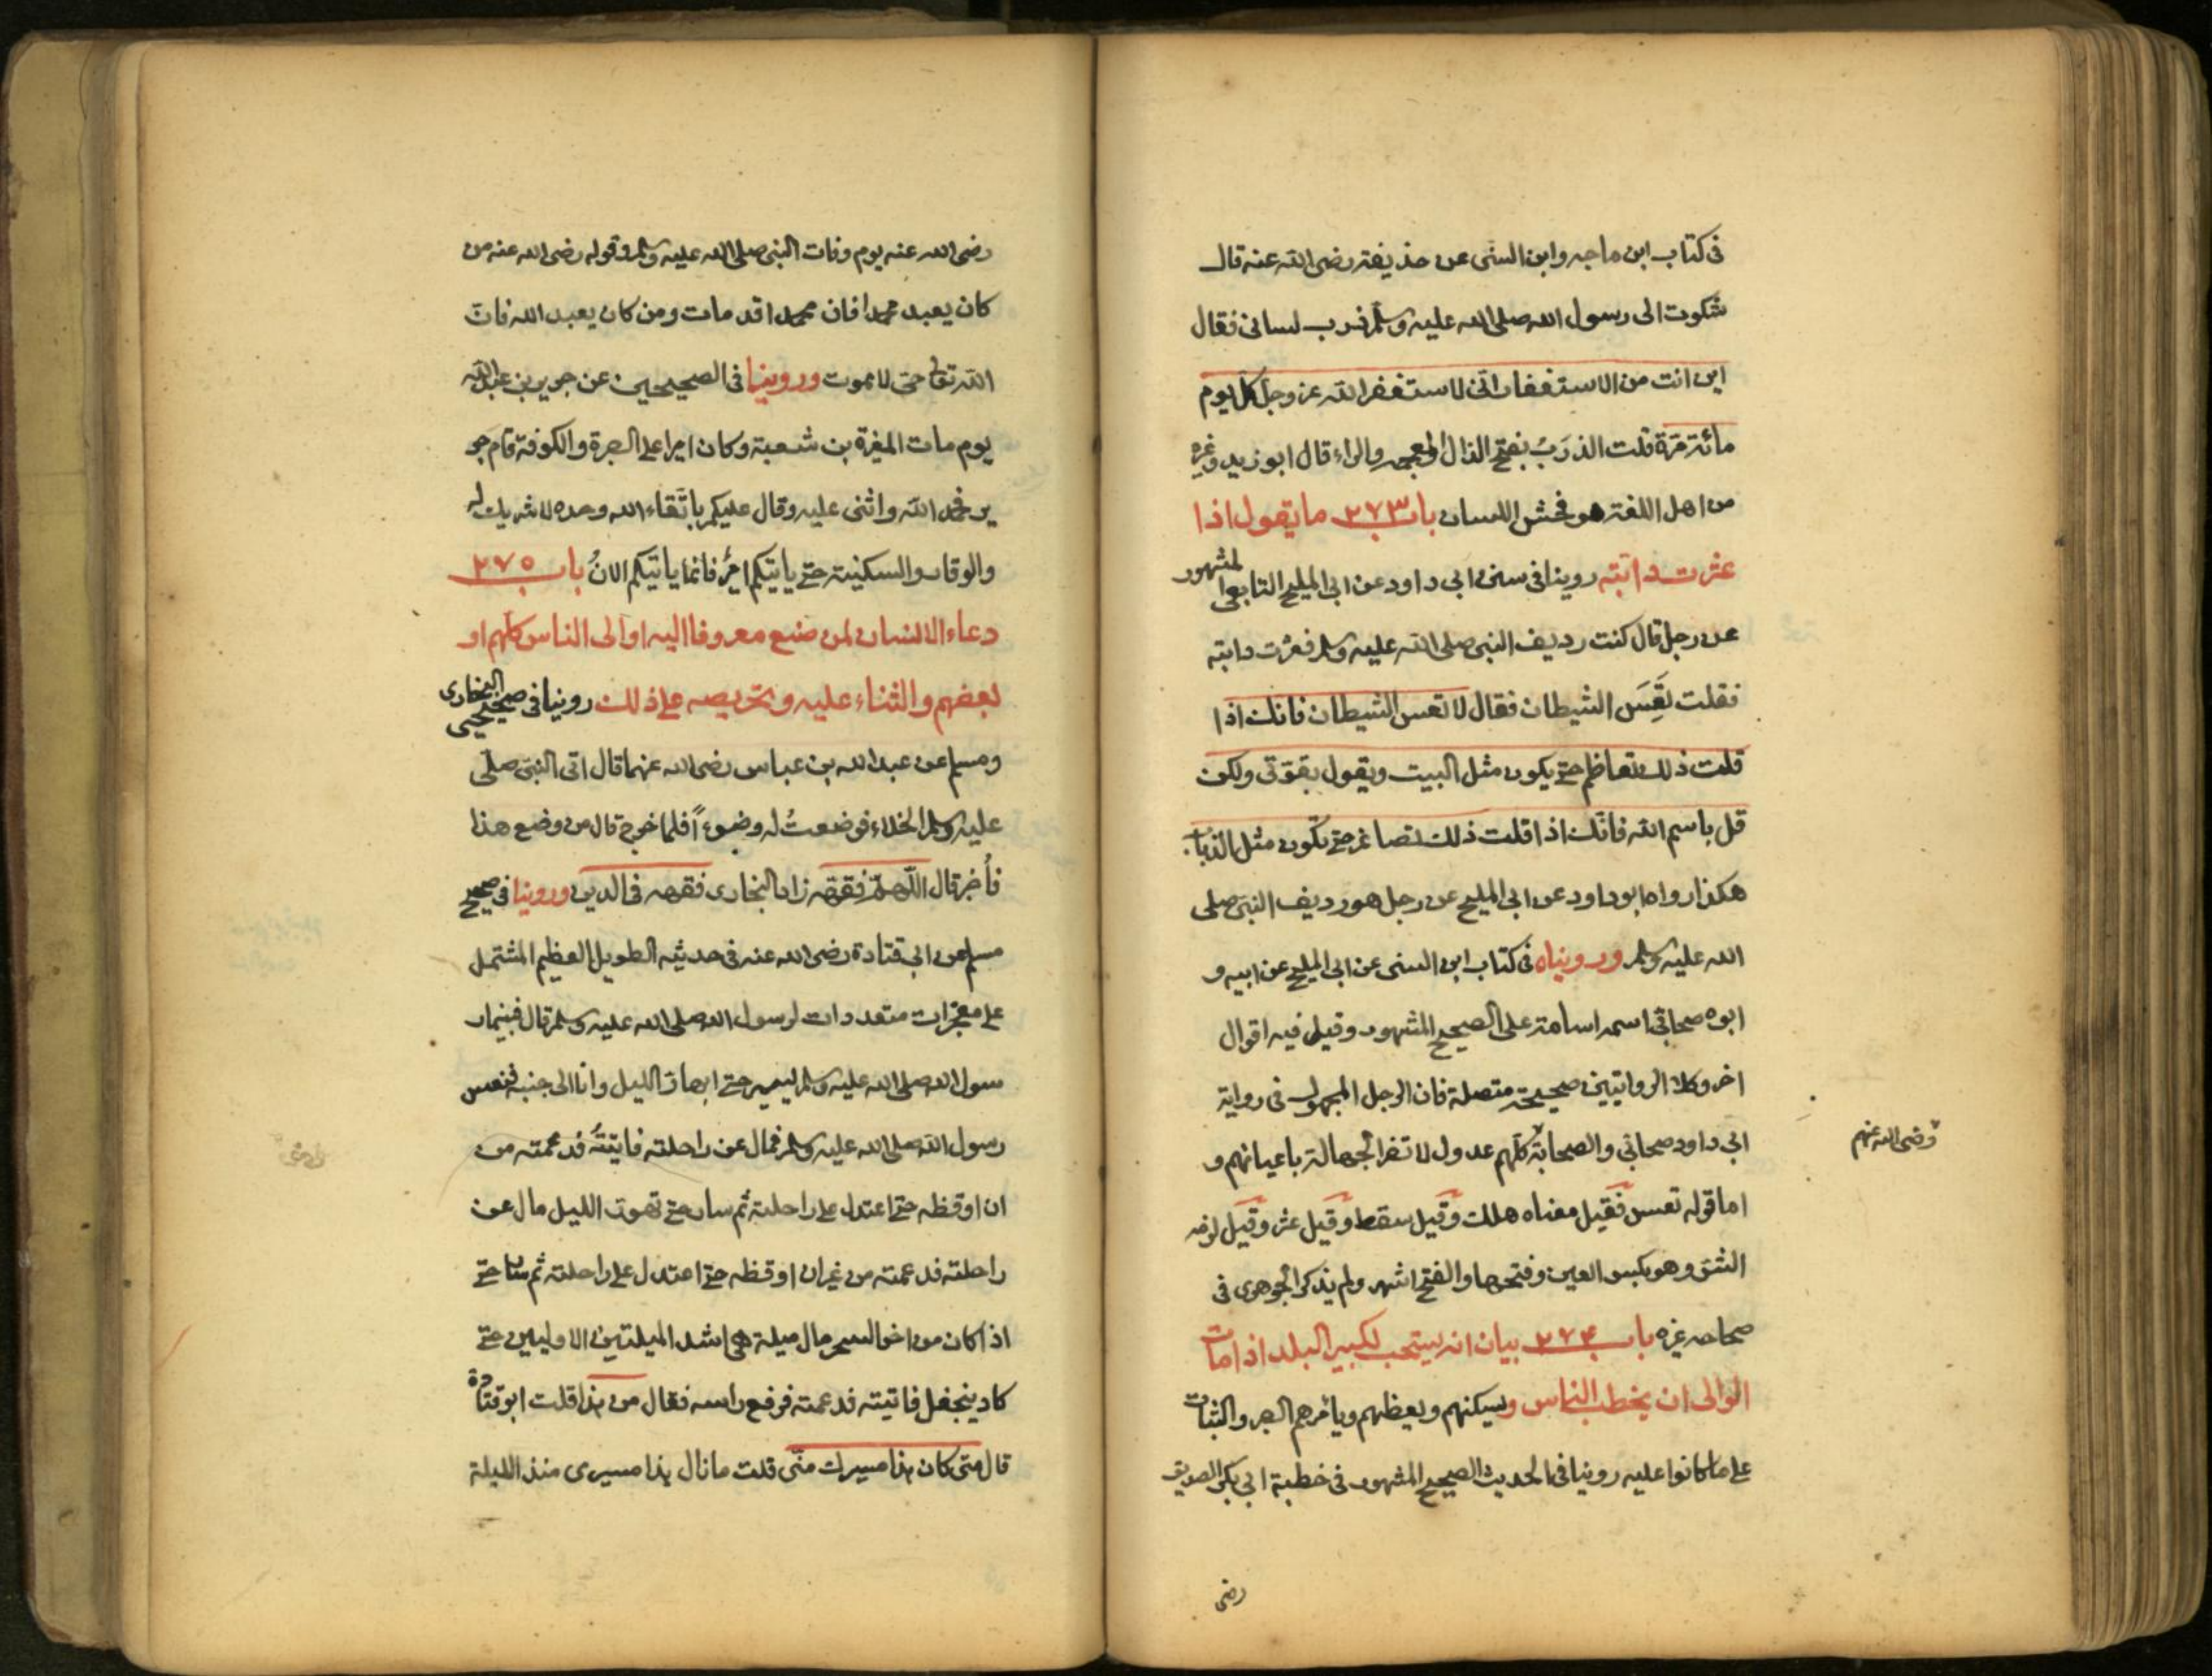 في كتاب ابن ماجه وابن السني عن حذيفة رضي الله عنه قال
شكوت الى رسول الله صلى الله عليه وسلم ذرب لساني فقال
اين انت من الاستغفار اني لاستغفر الله عز وجل كل يوم
مائة مرة قلت الذرَبُ بفتح الذال المعجمه والراء قال ابو زيد وغيره
من اهل اللغة هو فحش اللسان باب ٢٧٣ ما يقول اذا
عثرت دابته روينا في سنن ابي داود عن ابي المليح التابعي المشهور
عن رجل قال كنت رديف النبي صلى الله عليه وسلم فعثرت دابته
فقلت تَعِسَ الشيطان فقال لا تعس الشيطان فانك اذا
قلت ذلك تعاظم حتى يكون مثل البيت ويقول بقوتي ولكن
قل باسم الله فانك اذا قلت ذلك تصاغر حتى تكون مثل الذباب
هكذا رواه ابو داود عن ابي المليح عن رجل هو رديف النبي صلى
الله عليه وسلم ورويناه في كتاب ابن السني عن ابي المليح عن ابيه و
ابوه صحابي اسمه اسامة على الصحيح المشهور وقيل فيه اقوال
اخر وكلا الروايتين صحيحة متصلة فان الرجل المجهول في رواية
ابي داود صحابي والصحابة كلهم عدول لا تضر الجهالة باعيانهم و
رضي الله عنهم
اما قوله تعس فقيل معناه هلك وقيل سقط وقيل عثر وقيل لزمه
الشق وهو بكسر العين وفتحها والفتح اشهر ولم يذكر الجوهري في
صحاحه غيره باب ٢٧٤ بيان انه يستحب لكبير البلد اذا مات
الوالي ان يخطب الناس ويسكنهم ويعظهم ويأمرهم الصبر والثبات
على ما كانوا عليه روينا في الحديث الصحيح المشهور في خطبة ابي بكر الصديق
رضي
رضي الله عنه يوم وفات النبي صلى الله عليه وسلم وقوله رضي الله عنه من
كان يعبد محمدا فان محمدا قد مات ومن كان يعبد الله فان
الله تعالى حي لا يموت وروينا في الصحيحين عن جرير بن عبد الله
يوم مات المغيرة بن شعبة وكان اميرا على البصرة والكوفة قام جر
ير فحمد الله واثنى عليه وقال عليكم باتقاء الله وحده لا شريك له
والوقار والسكينة حتى ياتيكم اميرٌ فانما ياتيكم الانُ باب ٢٧٥
دعاء الانسان لمن صنع معروفا اليه او الى الناس كلهم او
بعضهم والثناء عليه وتحريضه على ذلك روينا في صحيحي البخاري
ومسلم عن عبد الله بن عباس رضي الله عنهما قال اتى النبي صلى
عليه وسلم الخلاء فوضعتُ له وضوءً فلما خرج قال من وضع هذا
فأُخبر قال اللهم فقهه زاد البخاري فقهه في الدين وروينا في صحيح
مسلم عن ابي قتادة رضي الله عنه في حديثه الطويل العظيم المشتمل
على معجزات متعددات لرسول الله صلى الله عليه وسلم قال فبينما ر
سول الله صلى الله عليه وسلم يسير حتى ابهار الليل وانا الى جنبه فنعس
رسول الله صلى الله عليه وسلم فمال عن راحلته فاتيتُه فدعمته من
ان اوقظه حتى اعتدل على راحلته ثم سار حتى تهور الليل مال عن
راحلته فدعمته من غير ان اوقظه حتى اعتدل على راحلته ثم سار حتى
اذا كان من اخر السحر مال ميلة هي اشد الميلتين الاوليين حتى
كاد ينجفل فاتيته فدعمته فرفع راسه فقال من هذا قلت ابو قتادة
قال متى كان هذا مسيرك منّي قلت ما نال هذا مسيري منذ الليلة